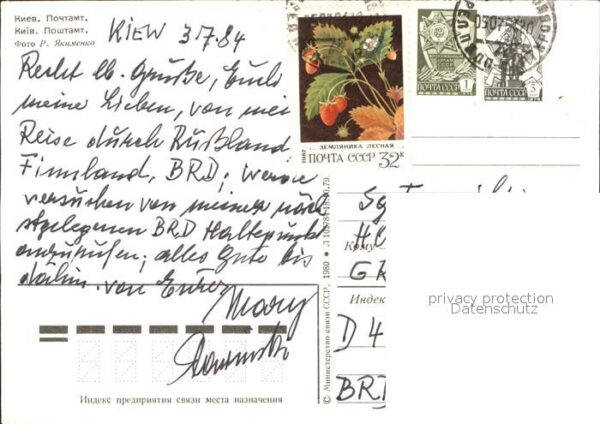 Киев. Почтамт.
Київ. Поштамт.
Фото Р. Якименко
KIEW 3.7.84
Recht lb. Grüße, Euch
meine Lieben, von mei
Reise durch Rußland
Finnland, BRD, werde
versuchen von meiner näch
stgelegenen BRD Haltepunkt
anzurufen; alles Gute bis
dahin. von Eurer
Mary
ЗЕМЛЯНИКА ЛЕСНАЯ
1982 ПОЧТА СССР 32к
ПОЧТА СССР 1
ПОЧТА СССР 3
Кому
GR
Индекс
D 4
BRD
© Министерство связи СССР, 1980
privacy protection
Datenschutz
Индекс предприятия связи места назначения